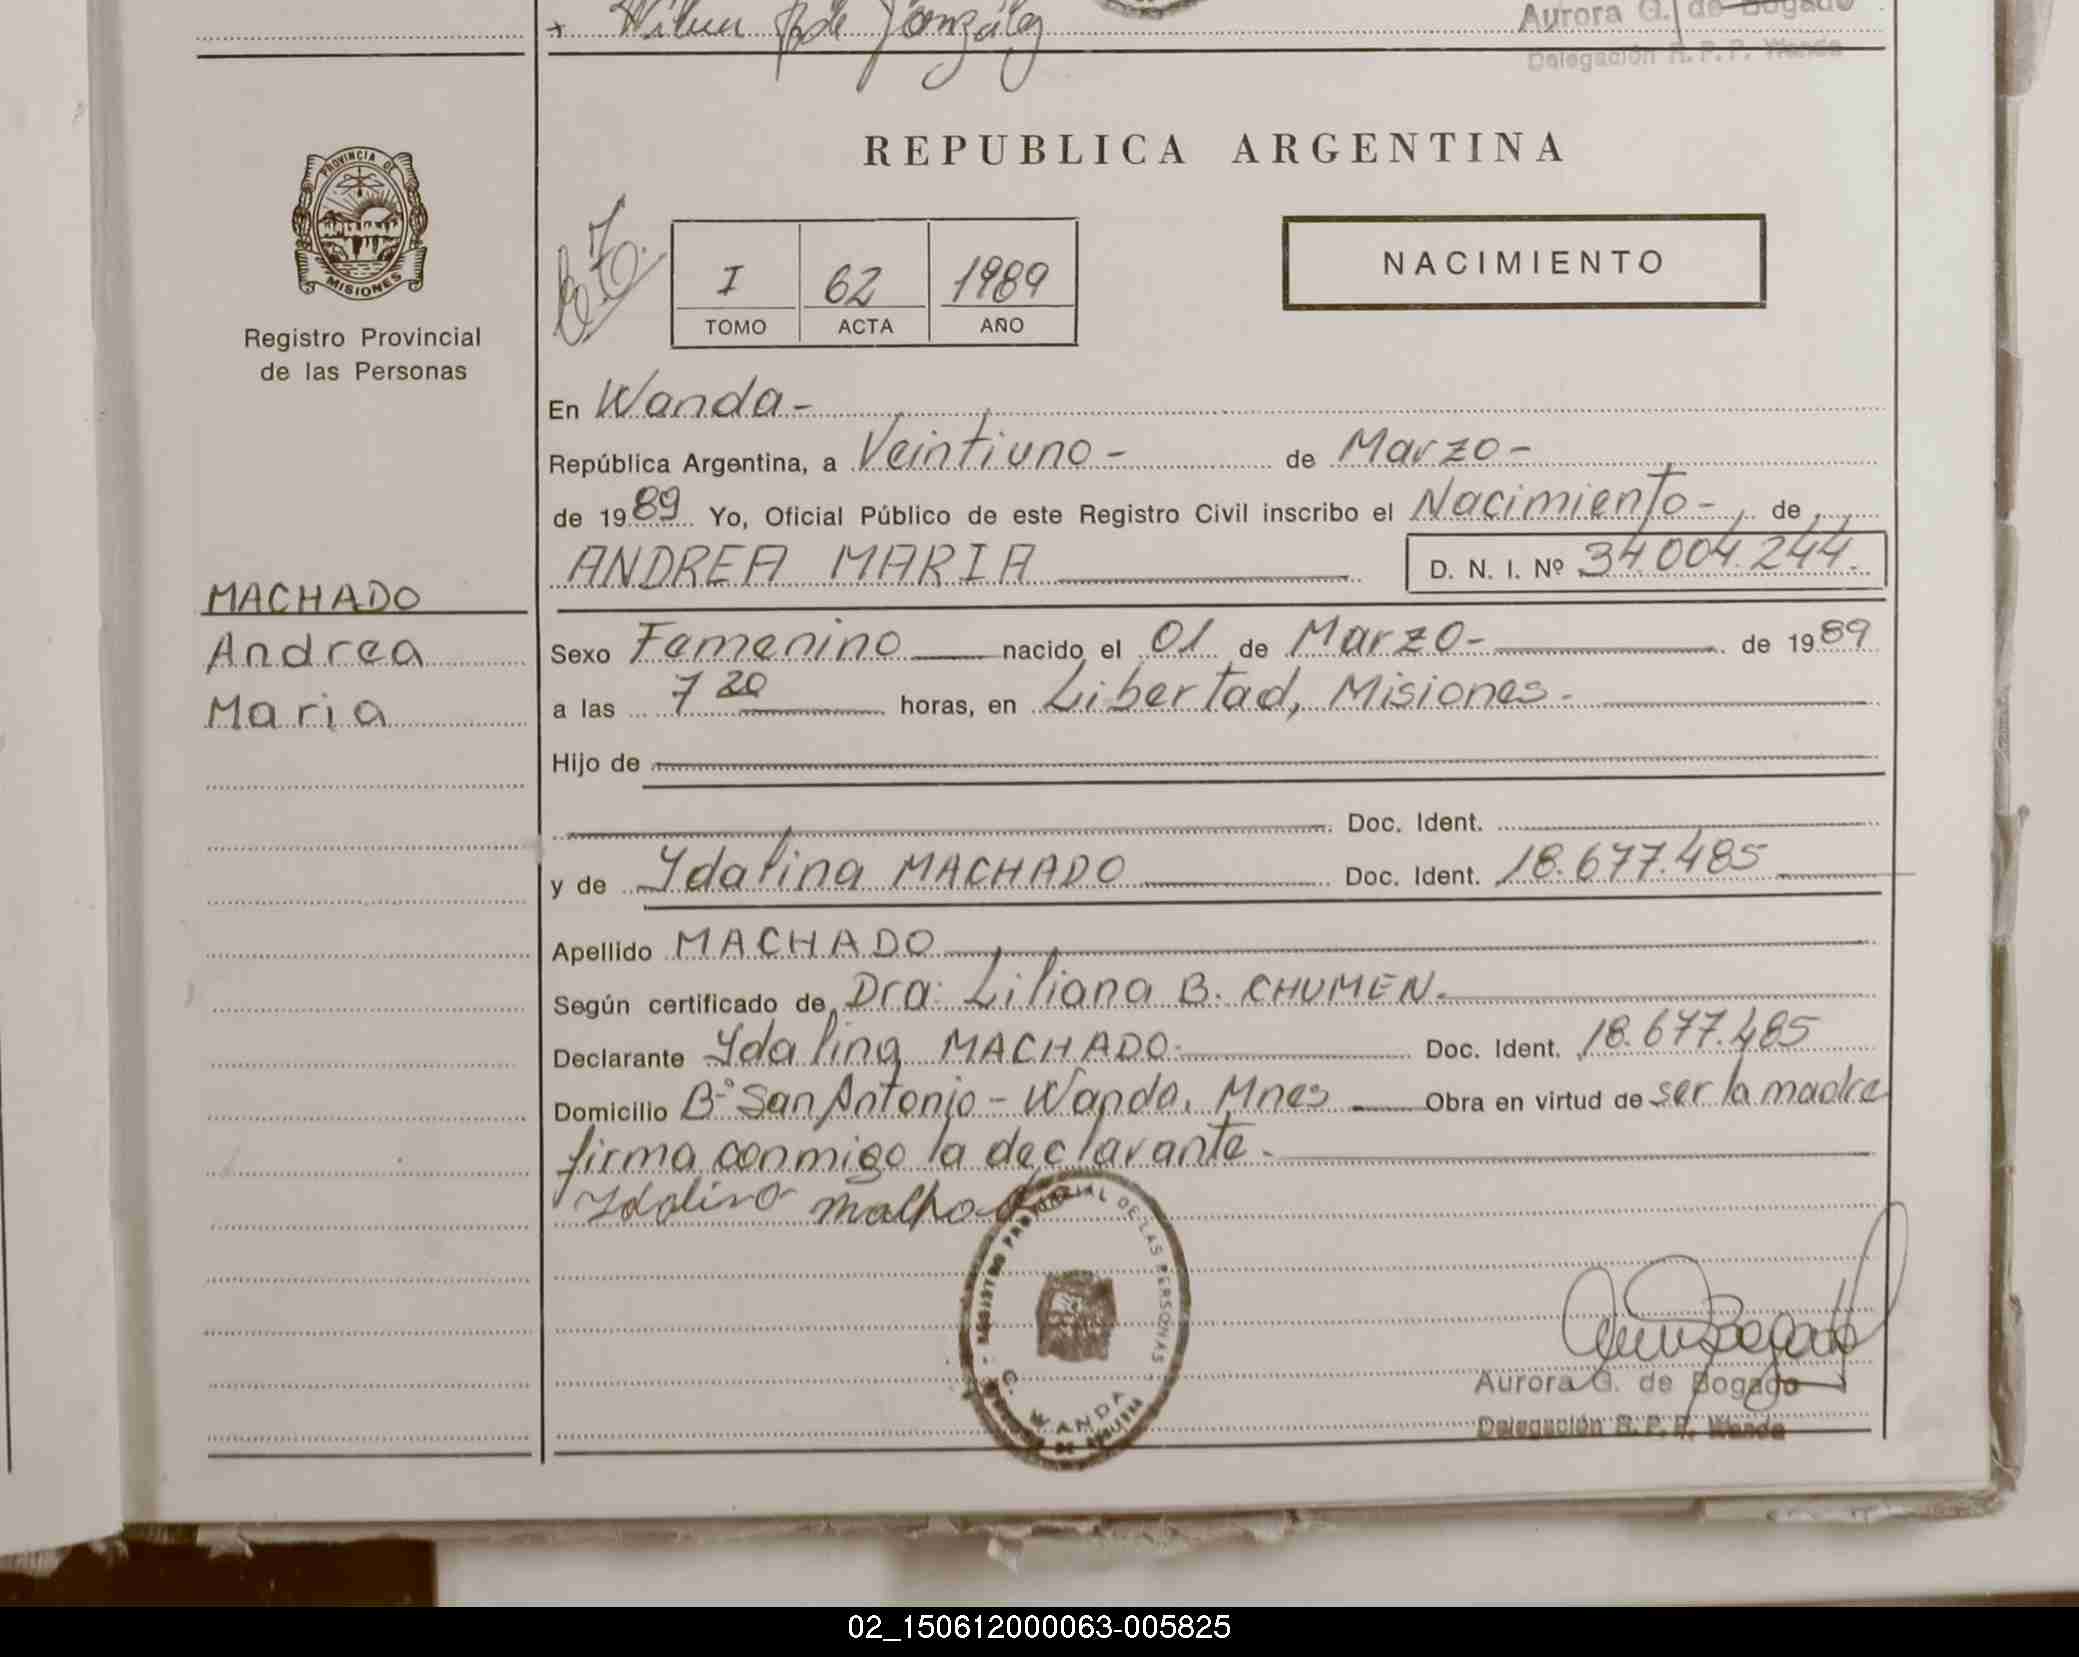 + Wilma F. de González
Aurora G. de Bogado
Delegación R. P. P. Wanda
REPUBLICA ARGENTINA
PROVINCIA DE
MISIONES
Registro Provincial
de las Personas
I 62 1989
TOMO ACTA AÑO
NACIMIENTO
En Wanda-
República Argentina, a Veintiuno- de Marzo-
de 1989 Yo, Oficial Público de este Registro Civil inscribo el Nacimiento- de
ANDREA MARIA D. N. I. Nº 34.004.244.
MACHADO
Andrea
Maria
Sexo Femenino nacido el 01 de Marzo- de 1989
a las 7 20 horas, en Libertad, Misiones-
Hijo de
Doc. Ident.
y de Ydalina MACHADO Doc. Ident. 18.677.485
Apellido MACHADO
Según certificado de Dra: Liliana B. CHUMEN.
Declarante Ydalina MACHADO- Doc. Ident. 18.677.485
Domicilio Bº San Antonio - Wanda, Mnes Obra en virtud de ser la madre
firma conmigo la declarante-
Ydalina
REGISTRO PROVINCIAL DE LAS PERSONAS
WANDA
Aurora G. de Bogado
Delegación R. P. P. Wanda
02_150612000063-005825